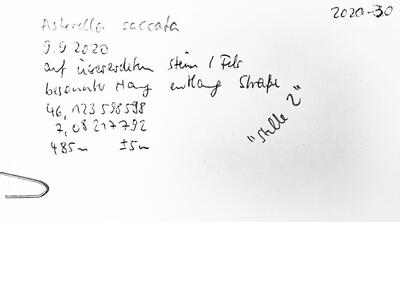 2020-30
Asterella saccata
9.9.2020
auf übererdetem Stein / Fels
besonnter Hang entlang Straße
46,123598598
7,08217792
485m ±5m
"Stelle 2"